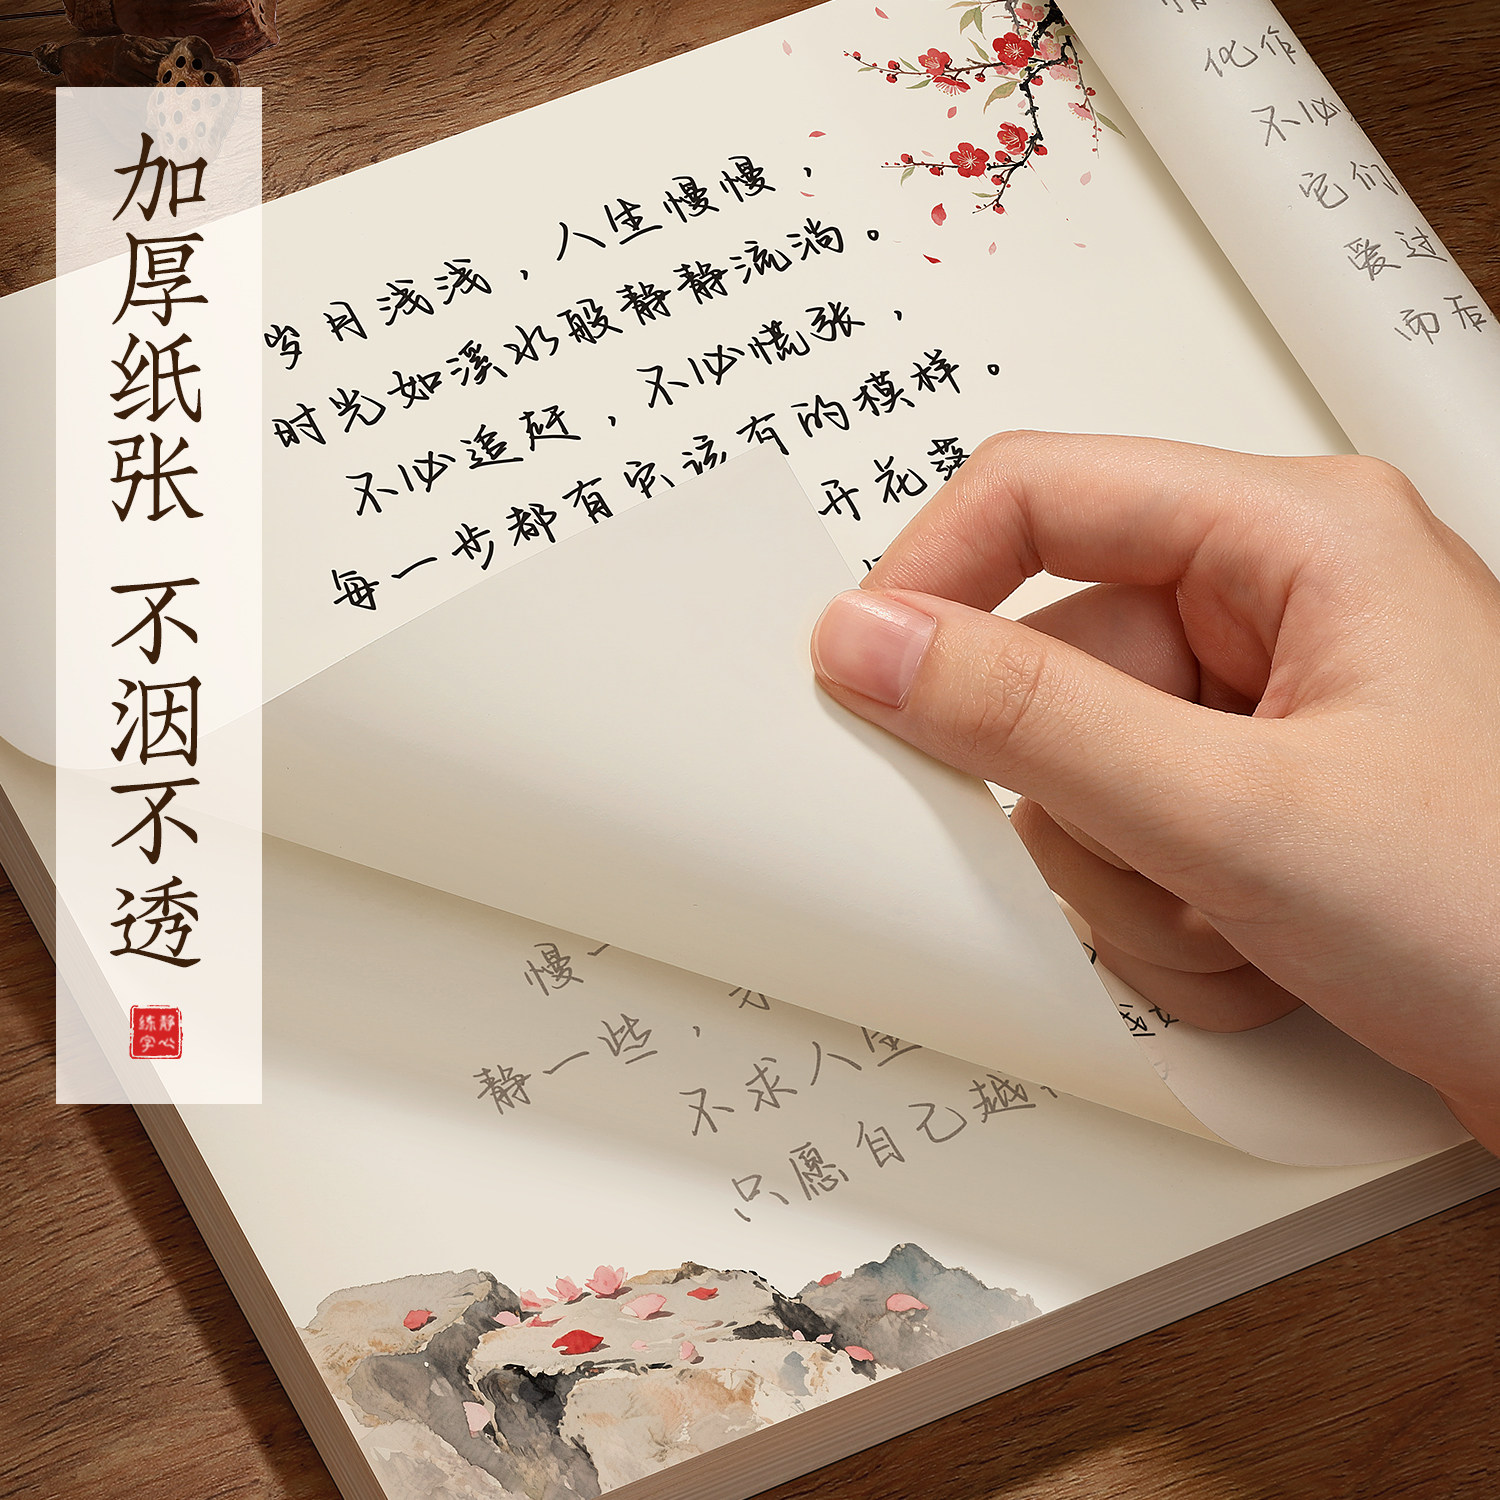 加厚纸张 不洇不透
静心
练字
岁月浅浅，人生慢慢，
时光如溪水般静静流淌。
不必追赶，不必慌张，
每一步都有它该有的模样。
开花落
慢一
静一些，
不求人生
只愿自己越
化作
不必
它们
爱过
而否